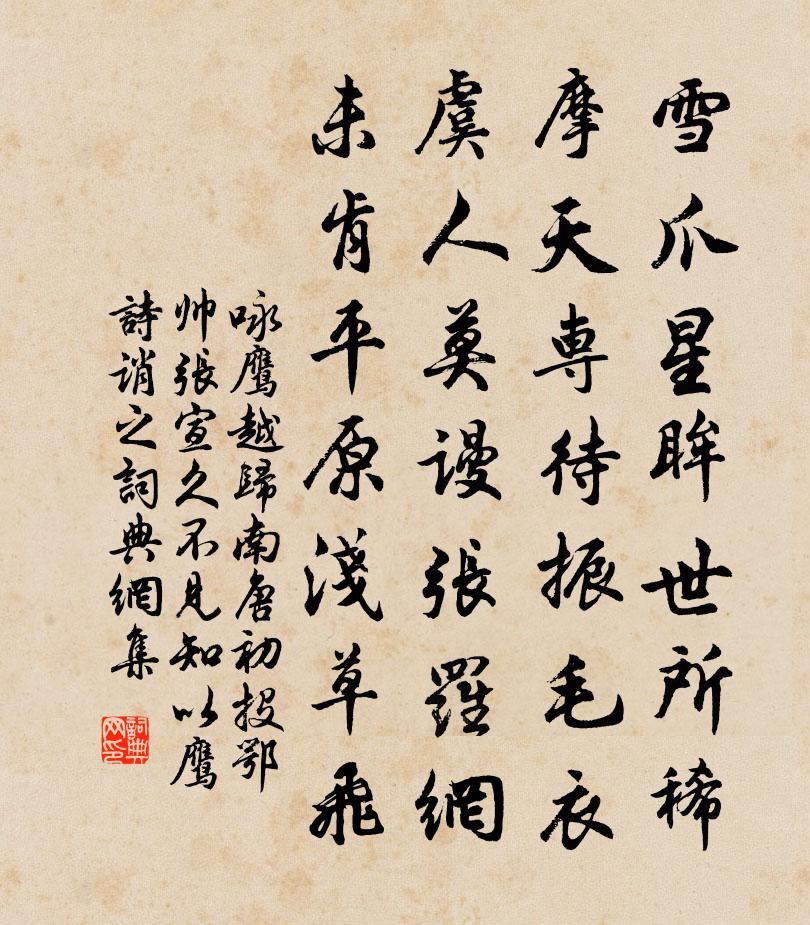 雪爪星眸世所稀
摩天專待振毛衣
虞人莫謾張羅網
未肯平原淺草飛
咏鷹越歸南唐初投鄂
帅張宣久不見知以鷹
詩誚之詞典網集
詞典网印